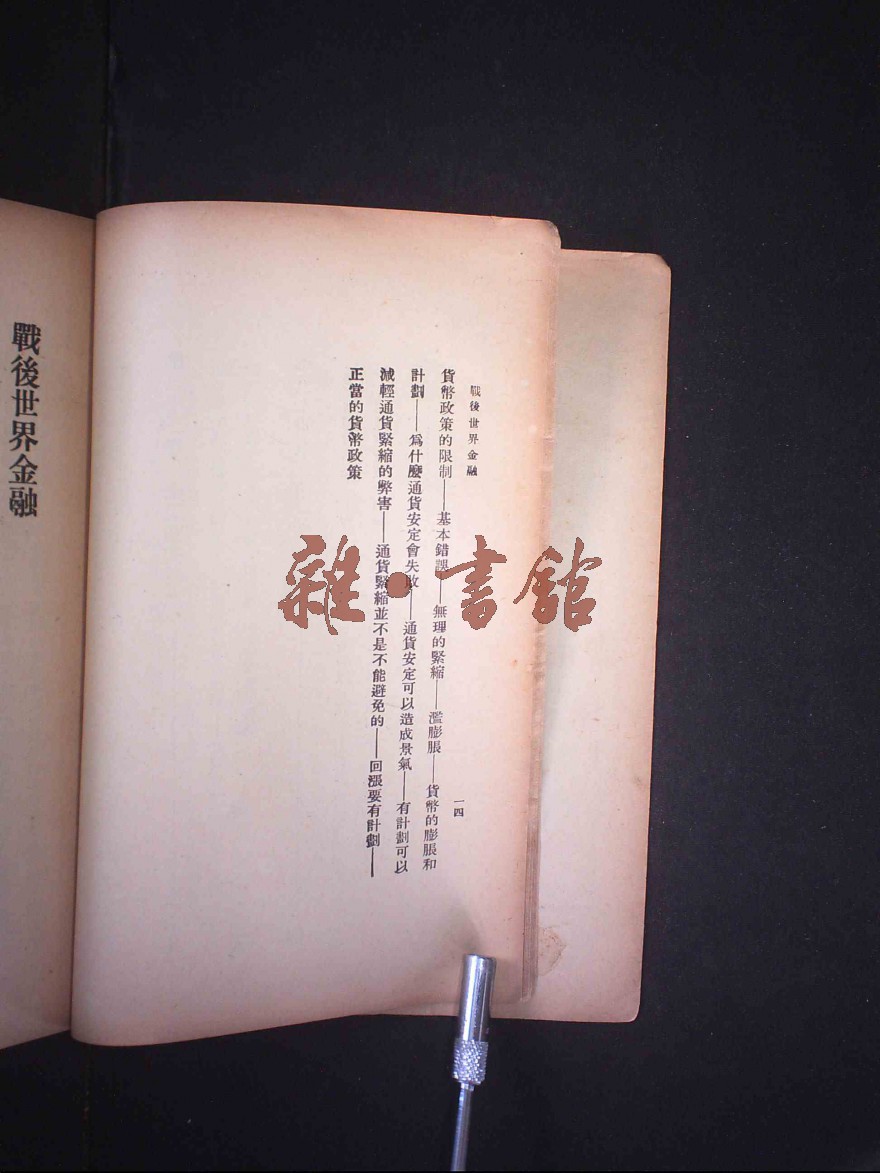 戰後世界金融
一四
貨幣政策的限制——基本錯誤——無理的緊縮——濫膨脹——貨幣的膨脹和
計劃——爲什麼通貨安定會失敗——通貨安定可以造成景氣——有計劃可以
減輕通貨緊縮的弊害——通貨緊縮並不是不能避免的——回漲要有計劃——
正當的貨幣政策
戰後世界金融
雜·書館